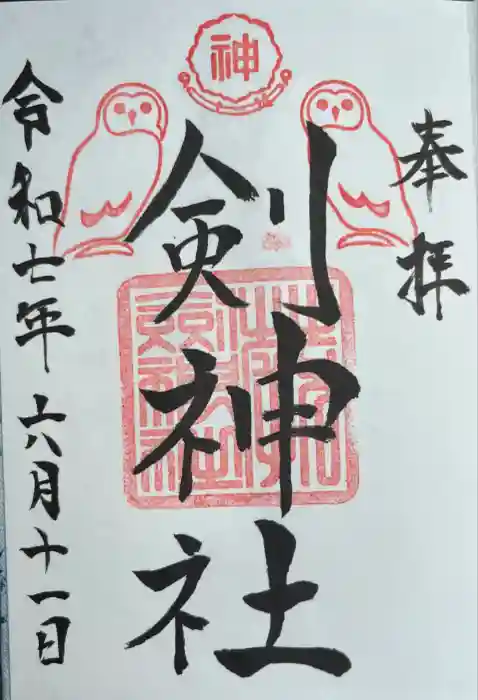 奉拝
剣神社
令和七年六月十一日
神